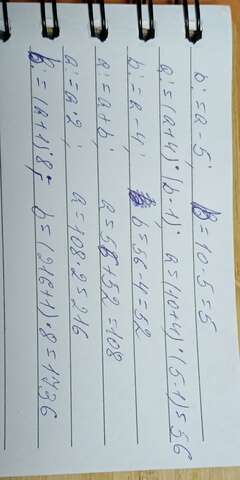 b:=a-5; b=10-5=5
a:=(a+4)*(b-1); a=(10+4)*(5-1)=56
b:=a-4; b=56-4=52
a:=a+b; a=56+52=108
a:=a*2; a=108·2=216
b:=(a+1)*8; b=(216+1)·8=1736